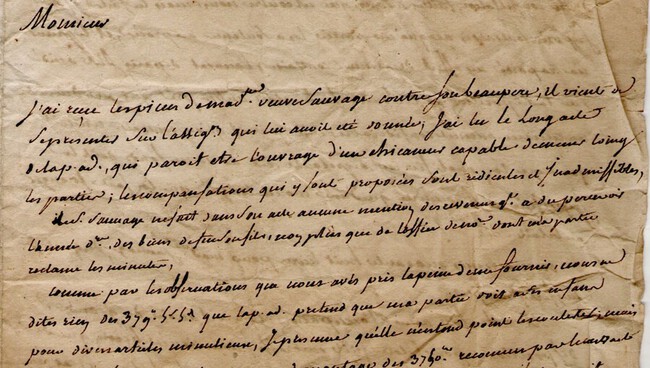 Monsieur
J'ai reçu les pieces de mad.e veuve Sauvage contre son beaupere, il vient de
se presenter sur l'assig.on qui lui avoit eté donnée; J'ai lu le long acte
de lap. ad., qui paroit etre l'ouvrage d'un chicaneur capable de mener loing
les parties; les compensations qui y sont proposées sont ridicules et Inadmissibles,
Sauvage ne fait dans son acte aucune mention des revenus q.l a du percevoir
l'année d.re des biens de feu son fils, non plus que de l'office de no.re dont ma partie
reclame les minutes,
Comme par les observations que vous avés pris la peine de me fournir, vous ne
dites rien des 379 que lap. ad. pretend que ma partie doit
pour divers articles minutieux, Je presume qu'elle n'entend point les contester, mais
des recornus par